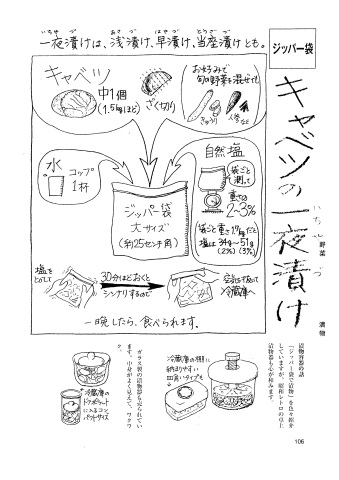 一夜漬けは、浅漬け、早漬け、当座漬けとも。
いちやづ
あさづ
はやづ
とうざづ
ジッパー袋
キャベツの一夜漬け
いちや
づ
野菜
漬物
キャベツ
中1個
(1.5kgほど)
ざく切り
お好みで
旬の野菜を混ぜても
きゅうり
人参など
水
コップ
1杯
自然塩
袋ごと
測って
重さの
2〜3%
袋ごと重さ1.7kgだと
塩は34g〜51g
(2%) (3%)
ジッパー袋
大サイズ
(約25センチ角)
塩を
とかして
30分ほどおくと
シンナリするので
空気を抜いて
冷蔵庫へ
一晩したら、食べられます。
漬物容器の話
「ジッパー袋で漬物」を色々紹介
していますが、昭和レトロの卓上
漬物器も心が和みます。
冷蔵庫の棚に
納まりやすい
四角いタイプも
ガラス製の漬物器も売られてい
ます。中身がよく見えて、ワクワ
ク。
冷蔵庫の
ドアポケット
に入るコン
パクトサイズ
106